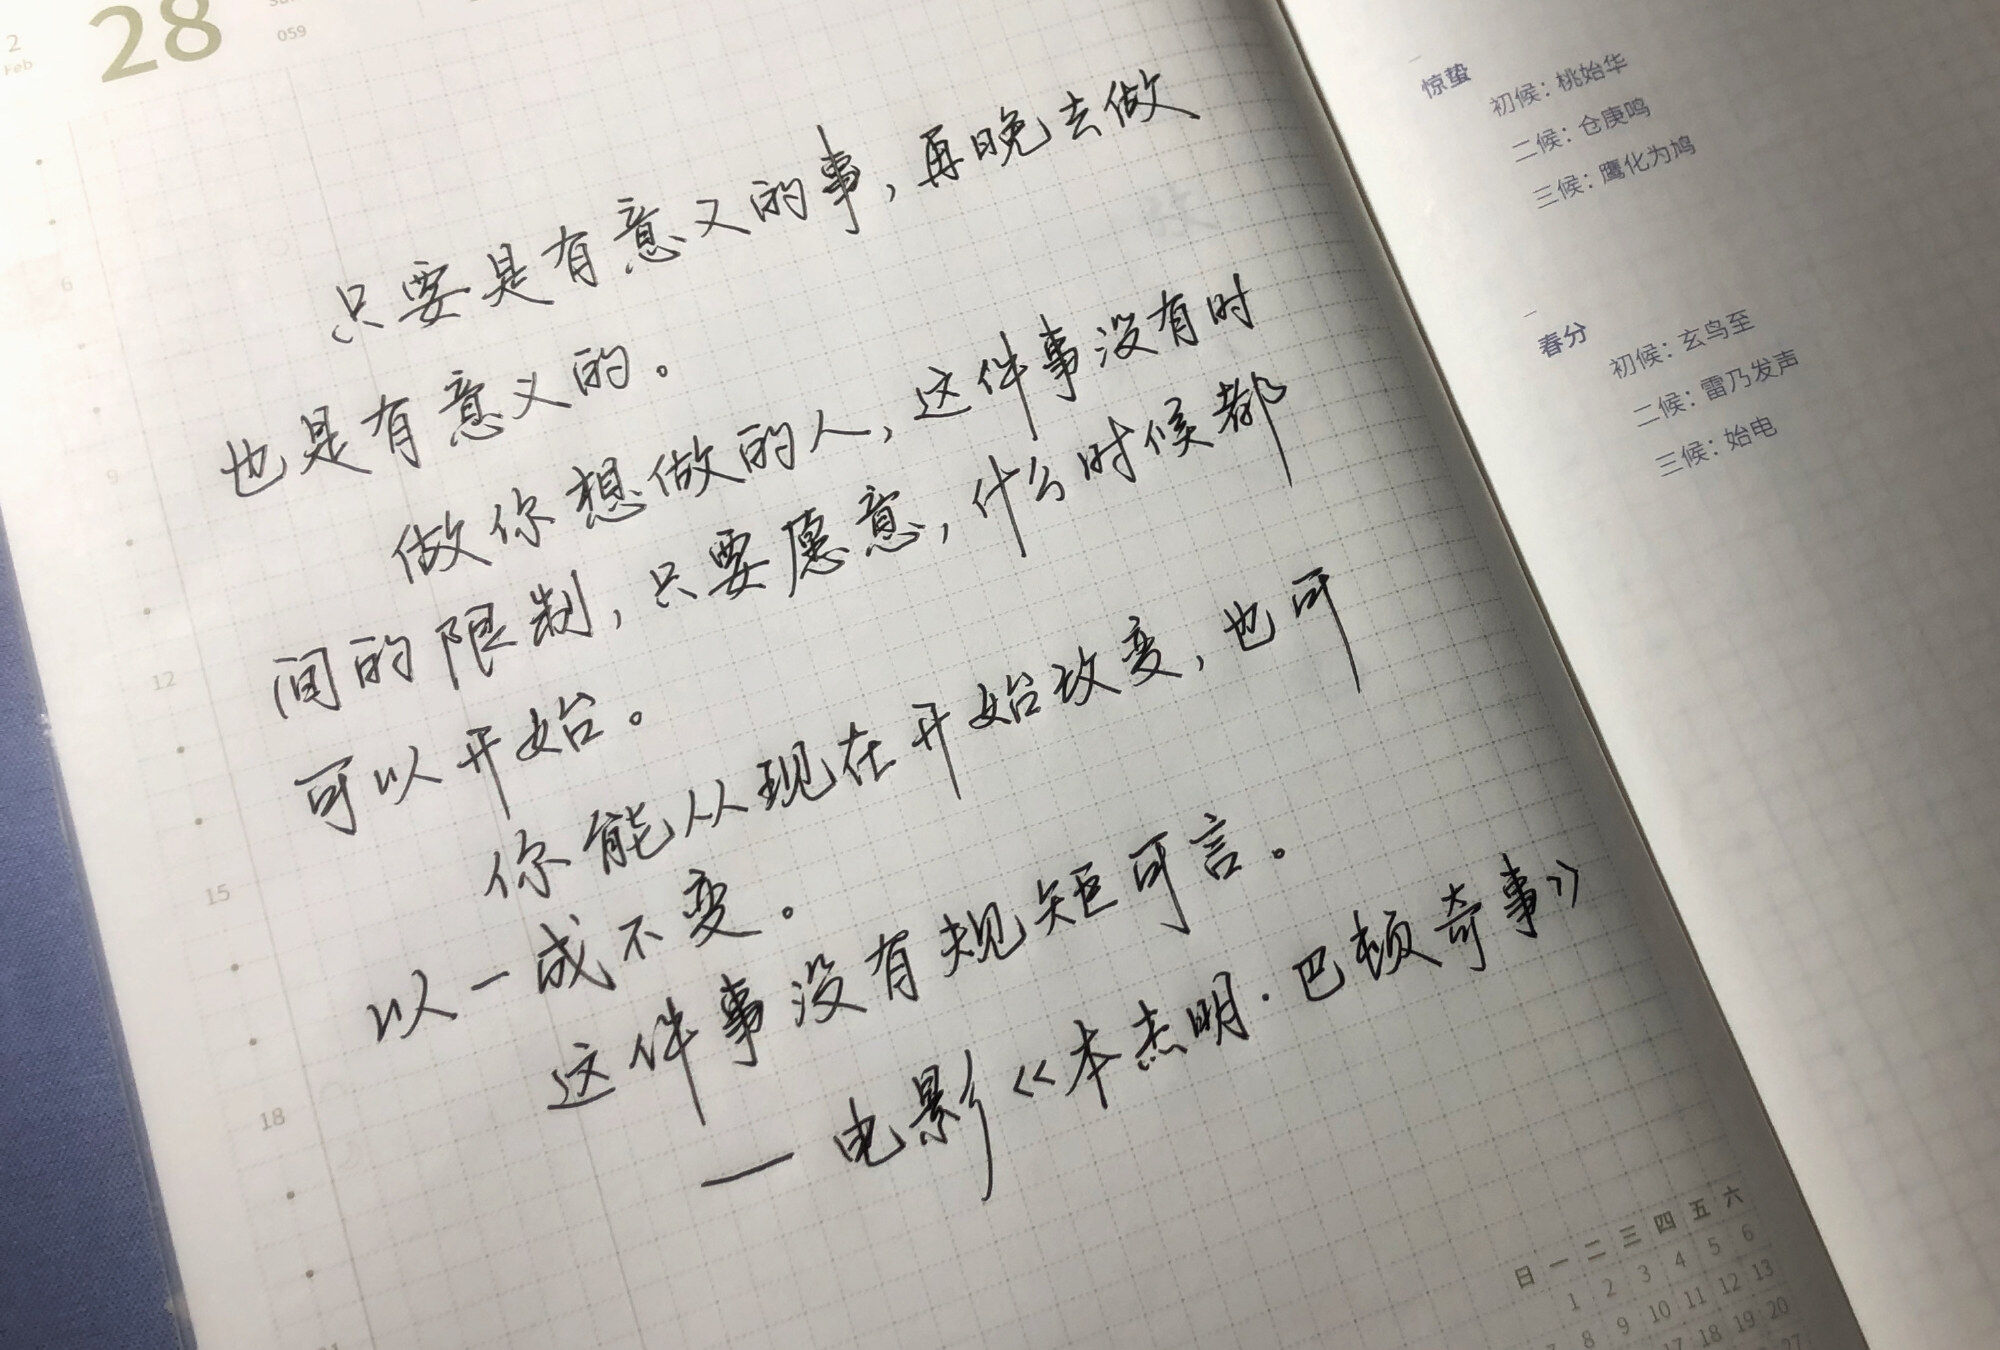 2
Feb
28
059
只要是有意义的事，再晚去做
也是有意义的。
做你想做的人，这件事没有时
间的限制，只要愿意，什么时候都
可以开始。
你能从现在开始改变，也可
以一成不变。
这件事没有规矩可言。
— 电影《本杰明·巴顿奇事》
6
9
12
15
18
惊蛰
初候：桃始华
二候：仓庚鸣
三候：鹰化为鸠
春分
初候：玄鸟至
二候：雷乃发声
三候：始电
日 一 二 三 四 五 六
1 2 3 4 5 6
7 8 9 10 11 12 13
17 18 19 20
27